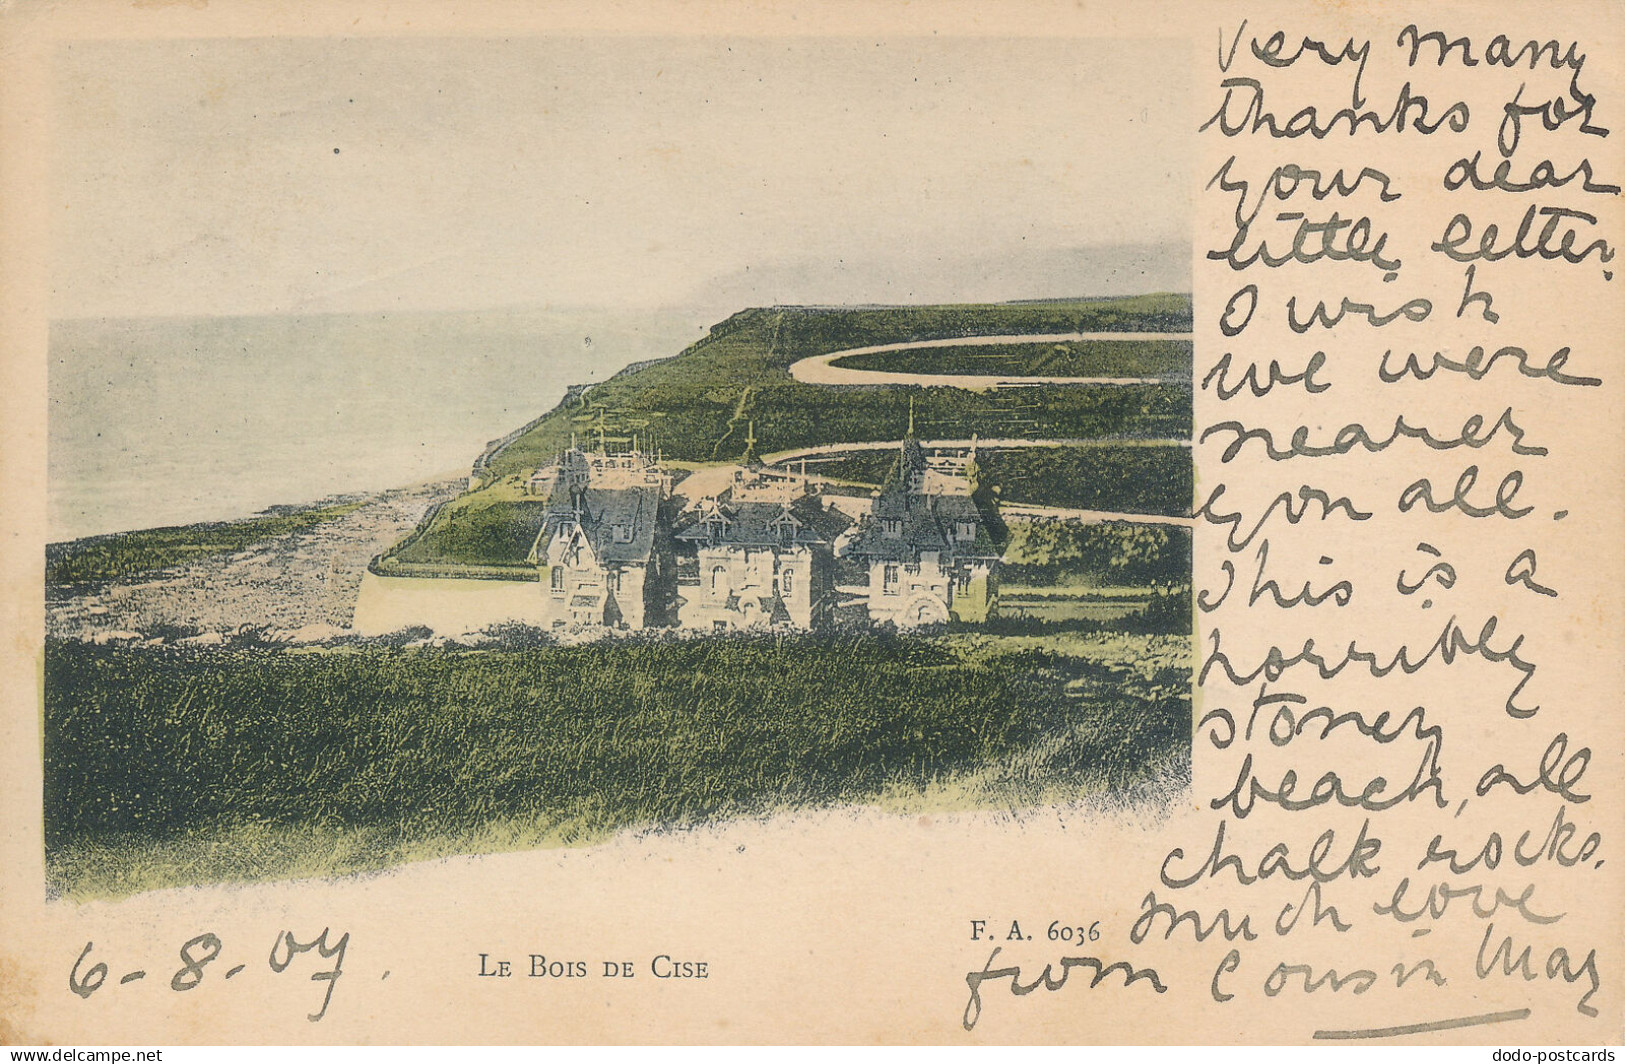 Very many
thanks for
your dear
little letter.
I wish
we were
nearer
you all.
This is a
horribly
stoney
beach, all
chalk rocks.
Much love
from Cousin May
F. A. 6036
6-8-07.
LE BOIS DE CISE
dodo-postcards